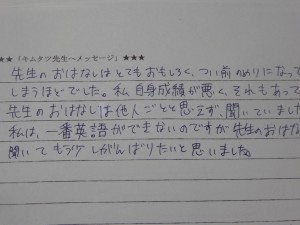 ★★「キムタツ先生へメッセージ」★★★
先生のおはなしはとてもおもしろく、つい前のめりになって
しまうほどでした。私自身成績が悪く、それもあって
先生のおはなしは他人ごとと思えず、聞いていました
私は、一番英語ができないのですが先生のおはな
聞いてもう少しがんばりたいと思いました。